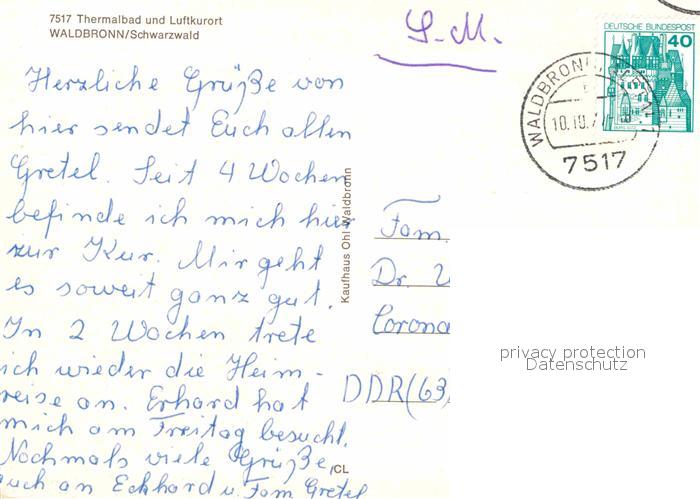 7517 Thermalbad und Luftkurort
WALDBRONN/Schwarzwald
S.-M.
DEUTSCHE BUNDESPOST
40
WALDBRONN
10.10.7
7517
Herzliche Grüße von
hier sendet Euch allen
Gretel. Seit 4 Wochen
befinde ich mich hier
zur Kur. Mir geht
es soweit ganz gut.
In 2 Wochen trete
ich wieder die Heim-
reise an. Erhard hat
mich am Freitag besucht.
Nochmals viele Grüße,
auch an Eckhard u. Fam Gretel
Kaufhaus Ohl Waldbronn
CL
Fam.
Dr.
Corona
DDR (63)
privacy protection
Datenschutz